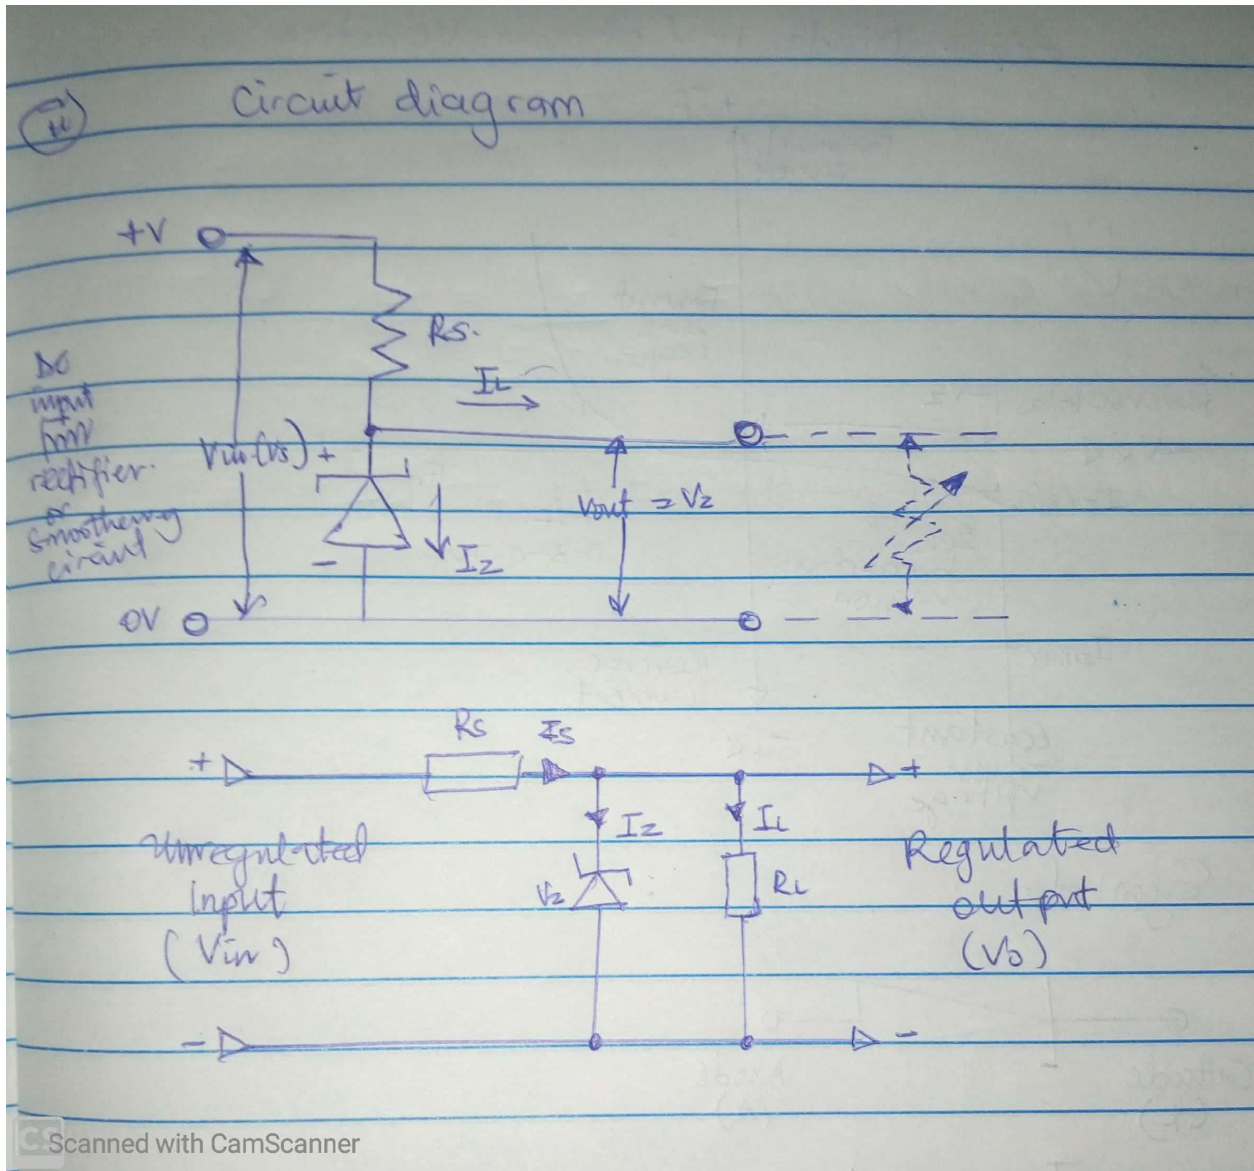 ii)
Circuit diagram
+V
Rs.
IL
DC
input
from
rectifier.
or
smoothening
circuit
Vin (Vs)
+
Vout = Vz
-
Iz
0V
Rs
Is
+
+
Iz
IL
Unregulated
input
(Vin)
Vz
RL
Regulated
output
(Vo)
-
-
CS Scanned with CamScanner